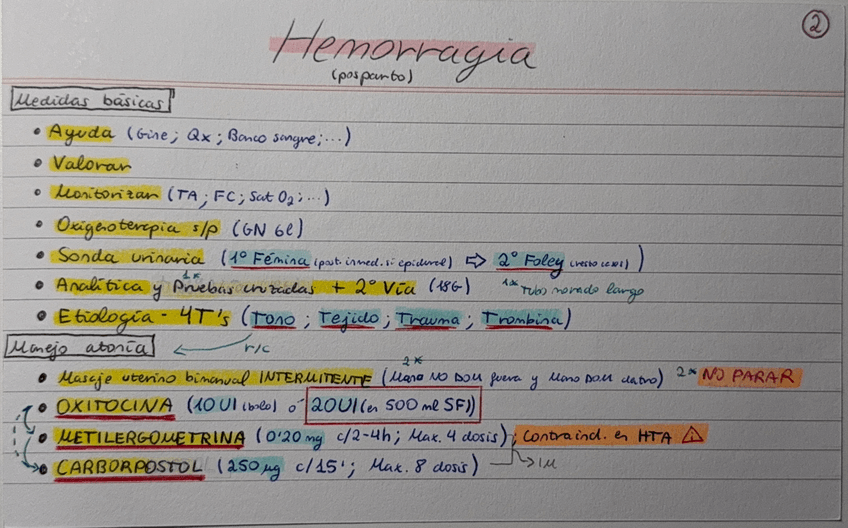 2
Hemorragia
(posparto)
Medidas básicas
• Ayuda (Gine; Qx; Banco sangre;...)
• Valorar
• Monitorizar (TA; FC; Sat O2;...)
• Oxigenoterapia s/p (GN 6l)
• Sonda urinaria (1º Fémina (post. inmed. si epidural) ⇨ 2º Foley (resto casos))
• Analítica y 1* Pruebas cruzadas + 2º Vía (18G) 1* Tubo morado largo
• Etiología - 4T's (Tono; Tejido; Trauma; Trombina)
Manejo atonía ← r/c
• Masaje uterino bimanual INTERMITENTE 2* (Mano NO DOM fuera y Mano DOM dentro) 2* NO PARAR
• OXITOCINA (10UI (bolo) ó 20UI (en 500 ml SF))
• METILERGOMETRINA (0'20 mg c/2-4h; Max. 4 dosis); Contraind. en HTA ⚠
• CARBORPOSTOL (250 µg c/15'; Max. 8 dosis) → IM